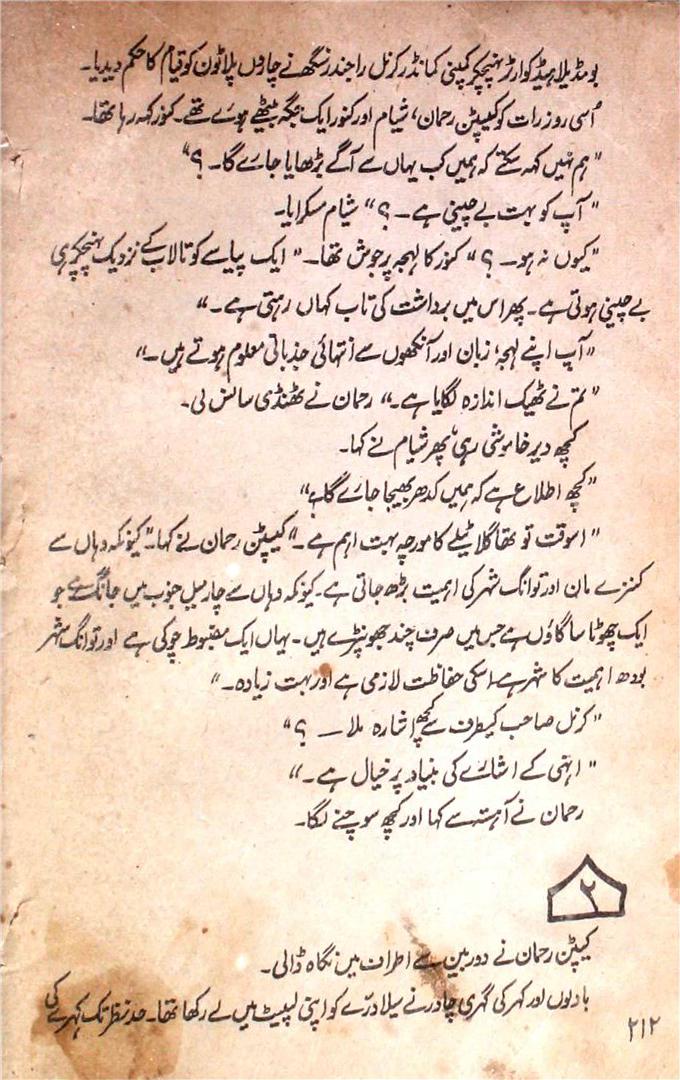 بومڈیلا ہیڈ کوارٹر پہنچکر کمپنی کمانڈر کرنل راجندر سنگھ نے چاروں پلاٹون کو قیام کا حکم دیدیا۔
اُسی روز رات کو کیپٹن رحمان، شیام اور کنور ایک جگہ بیٹھے ہوئے تھے۔ کنور کہہ رہا تھا۔
"ہم نہیں کہہ سکتے کہ ہمیں کب یہاں سے آگے بڑھایا جائے گا۔ ؟"
"آپ کو بہت بے چینی ہے۔ ؟" شیام مسکرایا۔
"کیوں نہ ہو۔ ؟" کنور کا لہجہ پرجوش تھا۔ "ایک پیاسے کو تالاب کے نزدیک پہنچکر ہی
بے چینی ہوتی ہے۔ پھر اس میں برداشت کی تاب کہاں رہتی ہے۔"
"آپ اپنے لہجہ، زبان اور آنکھوں سے انتہائی جذباتی معلوم ہوتے ہیں۔"
"تم نے ٹھیک اندازہ لگایا ہے۔" رحمان نے ٹھنڈی سانس لی۔
کچھ دیر خاموشی رہی، پھر شیام نے کہا۔
"کچھ اطلاع ہے کہ ہمیں کدھر بھیجا جائے گا؟"
"اسوقت تو تھاگلا ٹیلے کا مورچہ بہت اہم ہے۔" کیپٹن رحمان نے کہا۔ "کیونکہ وہاں سے
کنزے مان اور توانگ شہر کی اہمیت بڑھ جاتی ہے۔ کیونکہ وہاں سے چار میل جنوب میں جانگ ہے جو
ایک چھوٹا سا گاؤں ہے جس میں صرف چند جھونپڑے ہیں۔ یہاں ایک مضبوط چوکی ہے اور توانگ شہر
بودھ اہمیت کا شہر ہے اسکی حفاظت لازمی ہے اور بہت زیادہ۔"
"کرنل صاحب کیطرف سے کچھ اشارہ ملا ــ ؟"
"انہی کے اشارے کی بنیاد پر خیال ہے۔"
رحمان نے آہستہ سے کہا اور کچھ سوچنے لگا۔
۲
کیپٹن رحمان نے دوربین سے اطراف میں نگاہ ڈالی۔
بادلوں اور کہر کی گہری چادر نے سیلا درّے کو اپنی لپیٹ میں لے رکھا تھا۔ حد نظر تک کہرے کی
۲۱۲